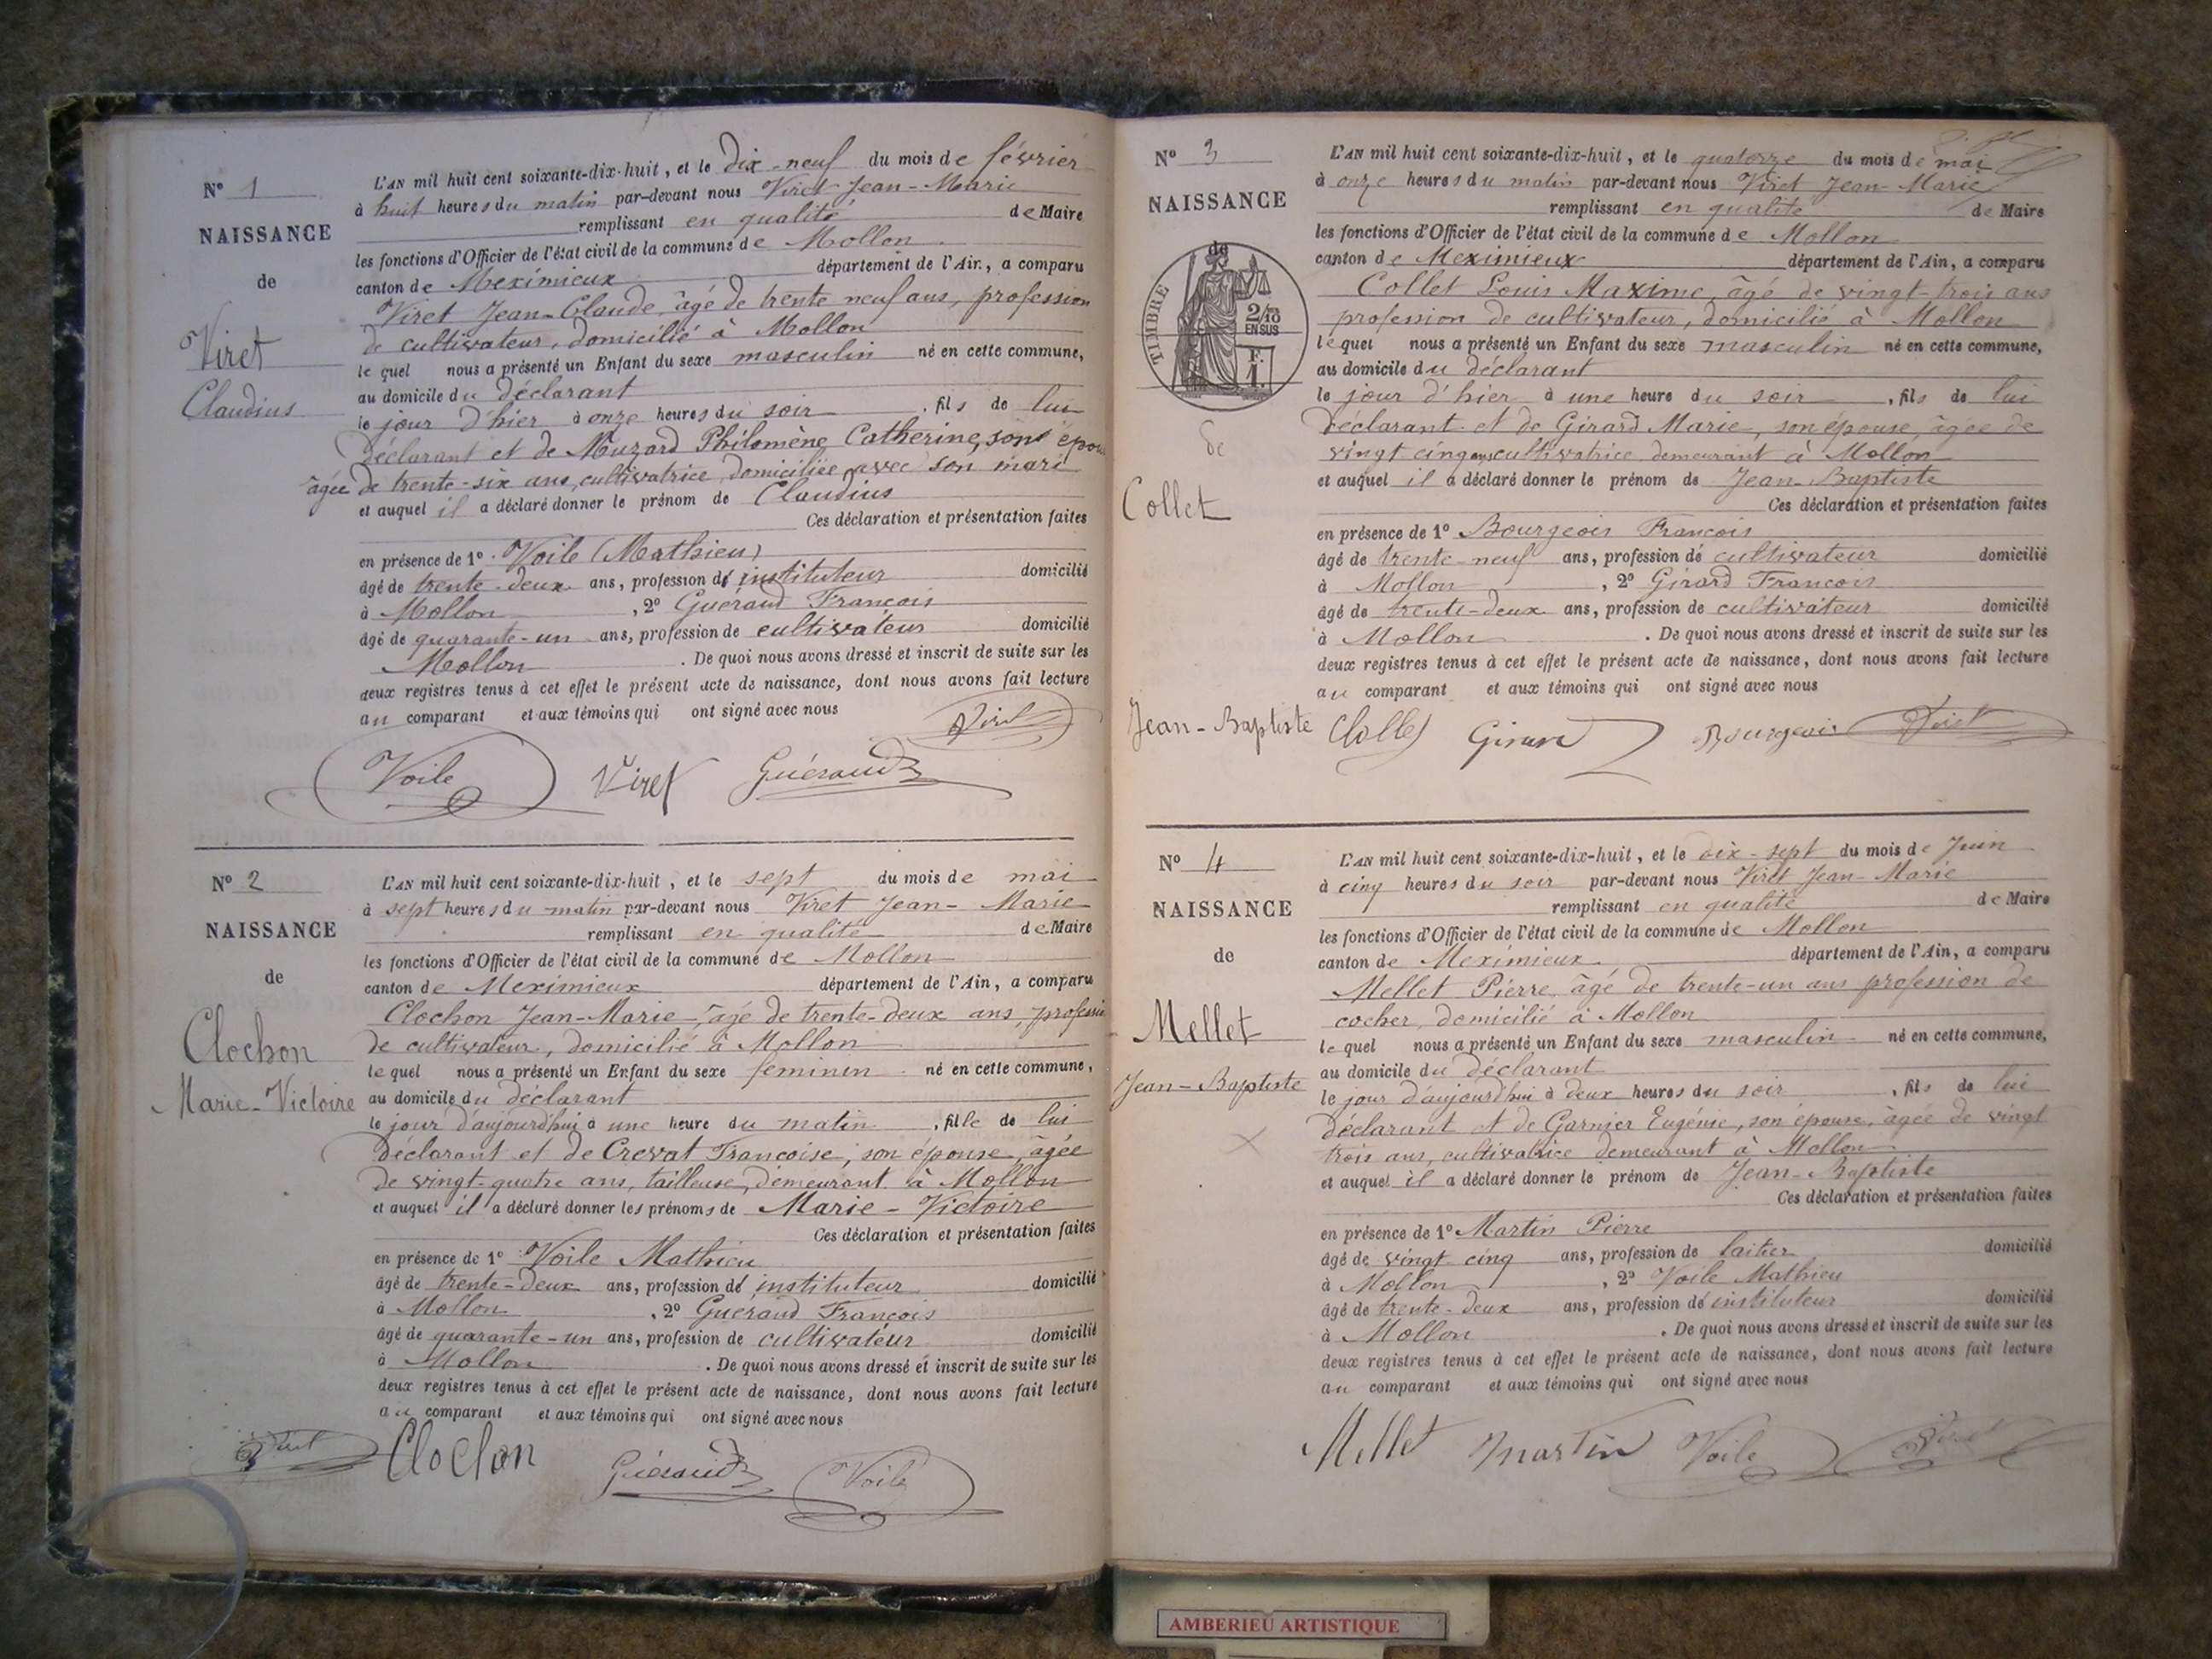 N° 1
NAISSANCE
de
Viret
Claudius
L'AN mil huit cent soixante-dix-huit, et le dix-neuf du mois de février
à huit heures du matin par-devant nous Viret Jean-Marie
remplissant en qualité de Maire
les fonctions d'Officier de l'état civil de la commune de Mollon
canton de Meximieux département de l'Ain, a comparu
Viret Jean-Claude, âgé de trente neuf ans, profession
de cultivateur, domicilié à Mollon
lequel nous a présenté un Enfant du sexe masculin né en cette commune,
au domicile du déclarant
le jour d'hier à onze heures du soir, fils de lui
déclarant et de Muzard Philomène Catherine, son épouse
âgée de trente-six ans, cultivatrice, domiciliée avec son mari
et auquel il a déclaré donner le prénom de Claudius
Ces déclaration et présentation faites
en présence de 1° Voile (Mathieu)
âgé de trente-deux ans, profession d'instituteur domicilié
à Mollon, 2° Guéraud François
âgé de quarante-un ans, profession de cultivateur domicilié
Mollon. De quoi nous avons dressé et inscrit de suite sur les
deux registres tenus à cet effet le présent acte de naissance, dont nous avons fait lecture
au comparant et aux témoins qui ont signé avec nous
Viret
Voile Viret Guéraud
N° 2
NAISSANCE
de
Clochon
Marie-Victoire
L'AN mil huit cent soixante-dix-huit, et le sept du mois de mai
à sept heures du matin par-devant nous Viret Jean-Marie
remplissant en qualité de Maire
les fonctions d'Officier de l'état civil de la commune de Mollon
canton de Meximieux département de l'Ain, a comparu
Clochon Jean-Marie, âgé de trente-deux ans, profession
de cultivateur, domicilié à Mollon
lequel nous a présenté un Enfant du sexe féminin né en cette commune,
au domicile du déclarant
le jour d'aujourd'hui à une heure du matin, fille de lui
déclarant et de Crevat Françoise, son épouse, âgée
de vingt-quatre ans, tailleuse, demeurant à Mollon
et auquel il a déclaré donner les prénoms de Marie-Victoire
Ces déclaration et présentation faites
en présence de 1° Voile Mathieu
âgé de trente-deux ans, profession d'instituteur domicilié
à Mollon, 2° Guéraud François
âgé de quarante-un ans, profession de cultivateur domicilié
à Mollon. De quoi nous avons dressé et inscrit de suite sur les
deux registres tenus à cet effet le présent acte de naissance, dont nous avons fait lecture
au comparant et aux témoins qui ont signé avec nous
Viret Clochon Guéraud Voile
N° 3
NAISSANCE
de
TIMBRE
2/10
EN SUS
F.
1.
de
Collet
Jean-Baptiste
L'AN mil huit cent soixante-dix-huit, et le quatorze du mois de mai
à onze heures du matin par-devant nous Viret Jean-Marie
remplissant en qualité de Maire
les fonctions d'Officier de l'état civil de la commune de Mollon
canton de Meximieux département de l'Ain, a comparu
Collet Louis Maxime, âgé de vingt-trois ans
profession de cultivateur, domicilié à Mollon
lequel nous a présenté un Enfant du sexe masculin né en cette commune,
au domicile du déclarant
le jour d'hier à une heure du soir, fils de lui
déclarant et de Girard Marie, son épouse, âgée de
vingt cinq ans cultivatrice demeurant à Mollon
et auquel il a déclaré donner le prénom de Jean-Baptiste
Ces déclaration et présentation faites
en présence de 1° Bourgeois François
âgé de trente-neuf ans, profession de cultivateur domicilié
à Mollon, 2° Girard François
âgé de trente-deux ans, profession de cultivateur domicilié
à Mollon. De quoi nous avons dressé et inscrit de suite sur les
deux registres tenus à cet effet le présent acte de naissance, dont nous avons fait lecture
au comparant et aux témoins qui ont signé avec nous
Collet Girard Bourgeois Viret
N° 4
NAISSANCE
de
Mellet
Jean-Baptiste
L'AN mil huit cent soixante-dix-huit, et le dix-sept du mois de Juin
à cinq heures du soir par-devant nous Viret Jean-Marie
remplissant en qualité de Maire
les fonctions d'Officier de l'état civil de la commune de Mollon
canton de Meximieux département de l'Ain, a comparu
Mellet Pierre, âgé de trente-un ans profession de
cocher, domicilié à Mollon
lequel nous a présenté un Enfant du sexe masculin né en cette commune,
au domicile du déclarant
le jour d'aujourd'hui à deux heures du soir, fils de lui
déclarant et de Garnier Eugénie, son épouse, âgée de vingt
trois ans, cultivatrice demeurant à Mollon
et auquel il a déclaré donner le prénom de Jean-Baptiste
Ces déclaration et présentation faites
en présence de 1° Martin Pierre
âgé de vingt cinq ans, profession de laitier domicilié
à Mollon, 2° Voile Mathieu
âgé de trente-deux ans, profession d'instituteur domicilié
à Mollon. De quoi nous avons dressé et inscrit de suite sur les
deux registres tenus à cet effet le présent acte de naissance, dont nous avons fait lecture
au comparant et aux témoins qui ont signé avec nous
Mellet Martin Voile Viret
AMBERIEU ARTISTIQUE